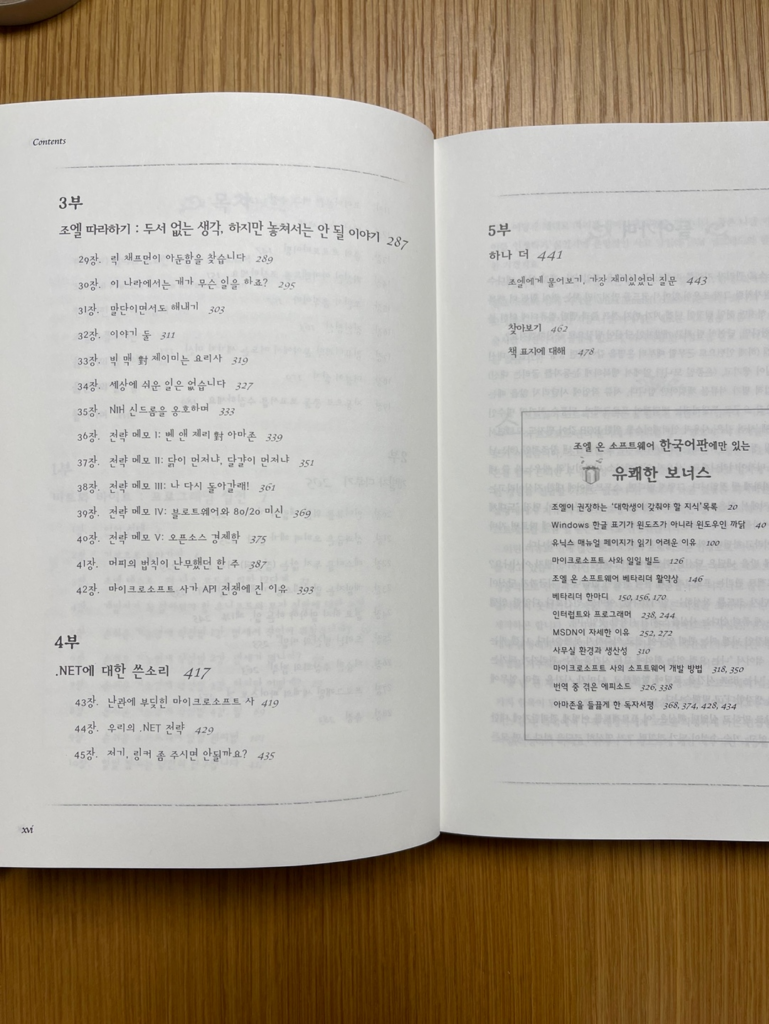 Contents
3부
조엘 따라하기 : 두서 없는 생각, 하지만 놓쳐서는 안 될 이야기 287
29장. 릭 채프먼이 아둔함을 찾습니다 289
30장. 이 나라에서는 개가 무슨 일을 하죠? 295
31장. 말단이면서도 해내기 303
32장. 이야기 둘 311
33장. 빅 맥 對 제이미는 요리사 319
34장. 세상에 쉬운 일은 없습니다 327
35장. NIH 신드롬을 옹호하며 333
36장. 전략 메모 I: 벤 앤 제리 對 아마존 339
37장. 전략 메모 II: 닭이 먼저냐, 달걀이 먼저냐 351
38장. 전략 메모 III: 나 다시 돌아갈래! 361
39장. 전략 메모 IV: 블로트웨어와 80/20 미신 369
40장. 전략 메모 V: 오픈소스 경제학 375
41장. 머피의 법칙이 난무했던 한 주 387
42장. 마이크로소프트 사가 API 전쟁에 진 이유 393
4부
.NET에 대한 쓴소리 417
43장. 난관에 부딪힌 마이크로소프트 사 419
44장. 우리의 .NET 전략 429
45장. 저기, 링커 좀 주시면 안될까요? 435
xvi
5부
하나 더 441
조엘에게 물어보기, 가장 재미있었던 질문 443
찾아보기 462
책 표지에 대해 478
조엘 온 소프트웨어 한국어판에만 있는
유쾌한 보너스
조엘이 권장하는 '대학생이 갖춰야 할 지식'목록 20
Windows 한글 표기가 윈도즈가 아니라 윈도우인 까닭 40
유닉스 매뉴얼 페이지가 읽기 어려운 이유 100
마이크로소프트 사와 일일 빌드 126
조엘 온 소프트웨어 베타리더 활약상 146
베타리더 한마디 150, 156, 170
인터럽트와 프로그래머 238, 244
MSDN이 자세한 이유 252, 272
사무실 환경과 생산성 310
마이크로소프트 사의 소프트웨어 개발 방법 318, 350
번역 중 겪은 에피소드 326, 338
아마존을 들끓게 한 독자서평 368, 374, 428, 434